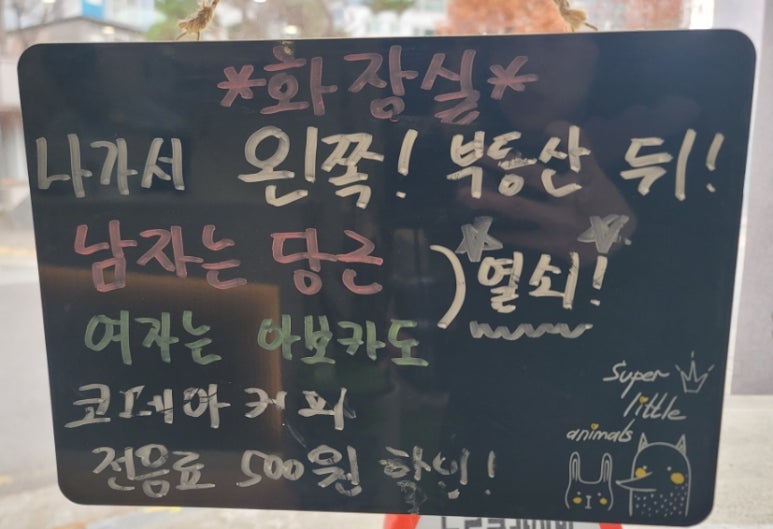 *화장실*
나가서 왼쪽! 부동산 뒤!
남자는 당근
여자는 아보카도
) 열쇠!
코데아 커피
전음료 500원 할인!
Super
little
animals